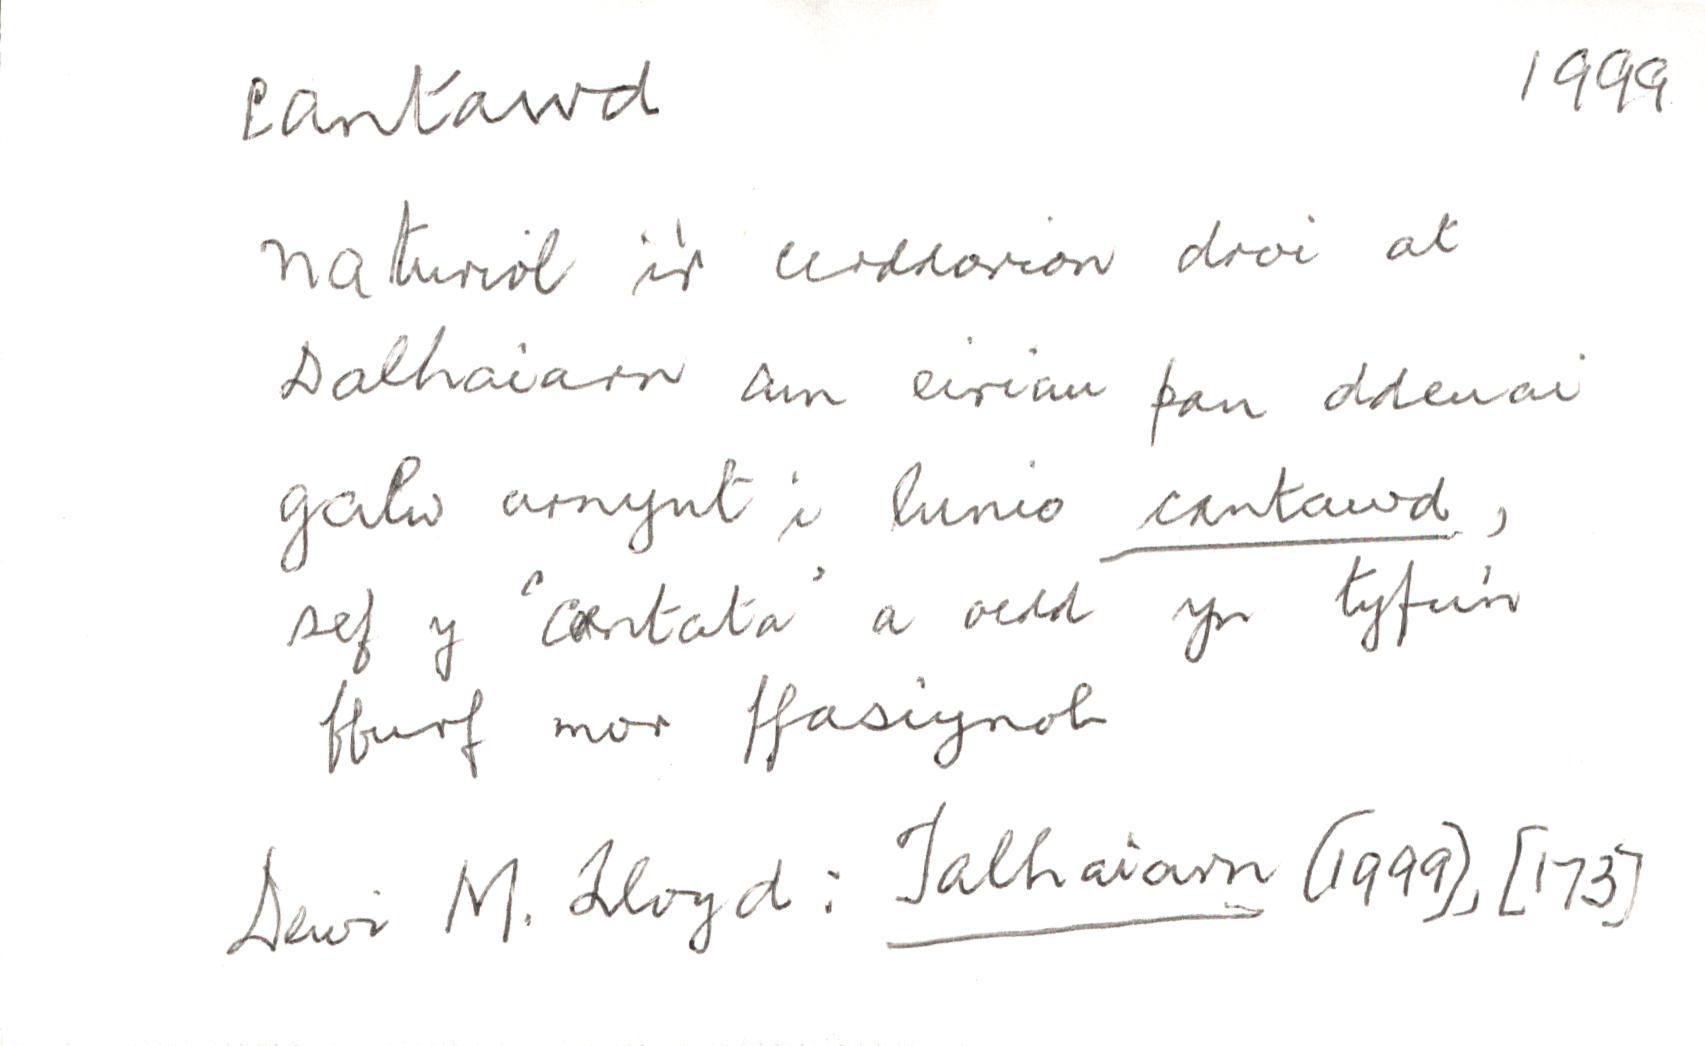 cantawd 1999
naturiol i'r cerddorion droi at
Dalhaiarn am eiriau pan ddeuai
galw arnynt i lunio cantawd,
sef y 'cantata' a oedd yn tyfu'n
ffurf mor ffasiynol
Dewi M. Lloyd: Talhaiarn (1999), [173]